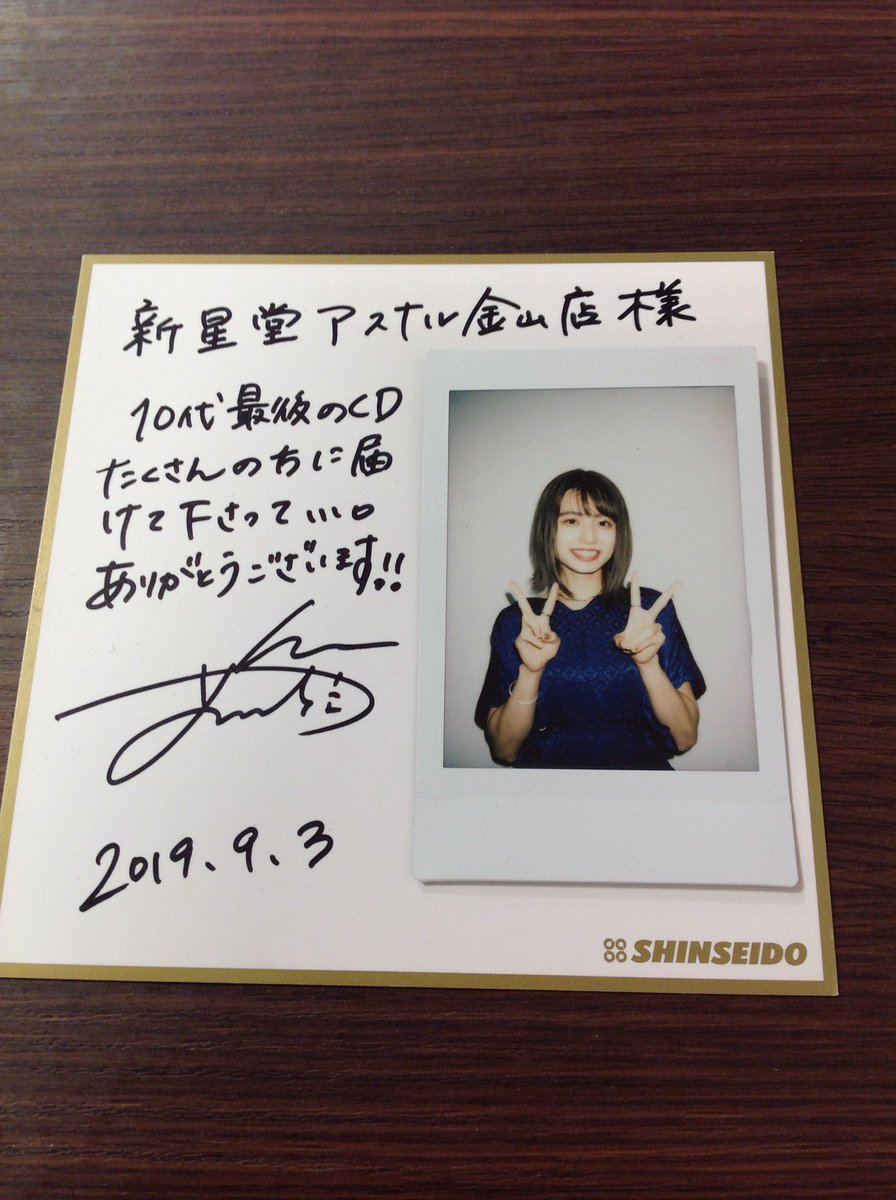 新星堂アスナル金山店様
10代最後のCD
たくさんの方に届
けて下さっていい。
ありがとうございます!!
2019.9.3
SHINSEIDO